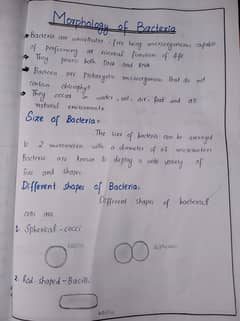 Morphology of Bacteria
Bacteria are unicellular, free living microorganisms capable
of performing all essential function of life
They posses both DNA and RNA
Bacteria are Prokaryotic microorganisms that do not
contain chlorophyll
They occur in water, soil, air, food and all
natural environments
Size of Bacteria:
The size of bacteria can be averaged
to 2 micrometer with a diameter of 0.5 micrometers
Bacteria are known to display a wide variety of
size and shapes
Different shapes of Bacteria:
Different shapes of bacterial
cells are
1. Spherical - cocci
2. Rod shaped - Bacilli